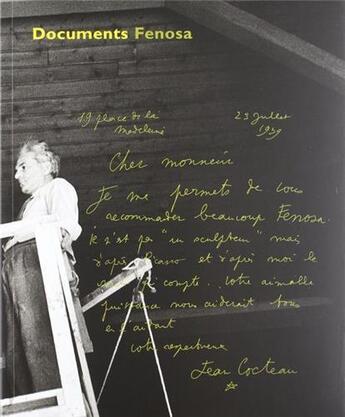 Documents Fenosa
19 place de la
Madeleine
23 Juillet
1939
Cher monsieur
Je me permets de vous
recommander beaucoup Fenosa.
Il n'est pas "un sculpteur" mais
d'après Picasso et d'après moi le
qui compte... votre aimable
puissance nous aiderait tous
en l'aidant
votre respectueux
Jean Cocteau